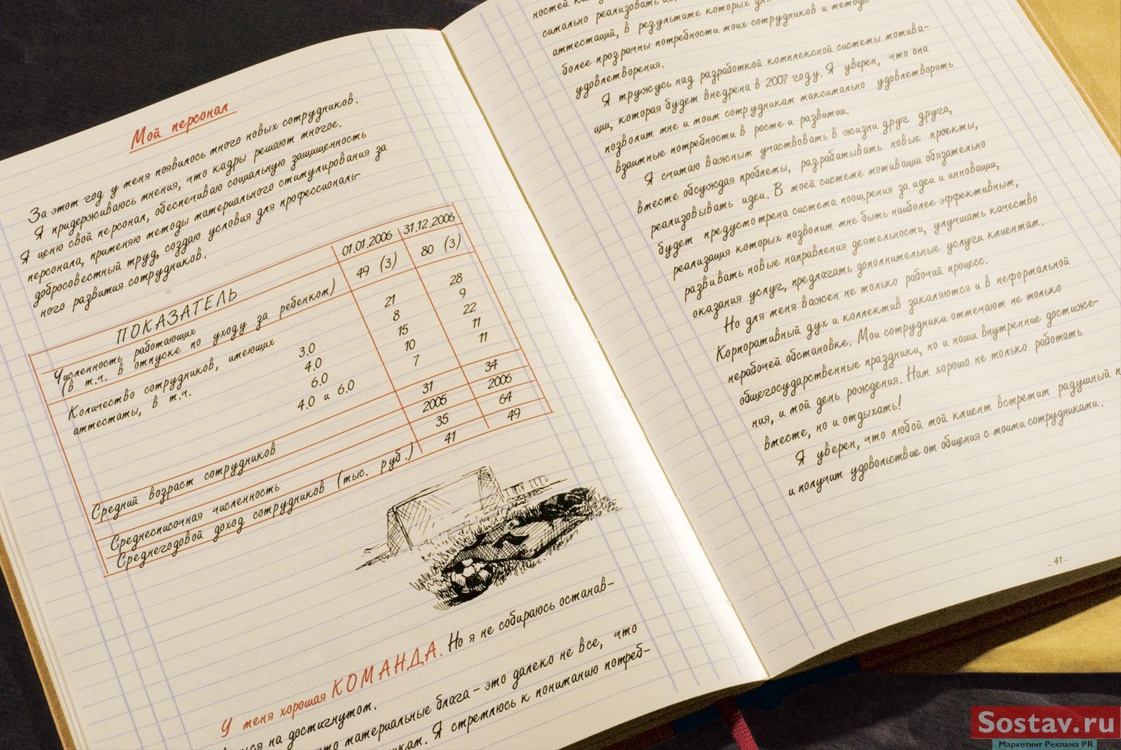 Мой персонал
За этот год у меня появилось много новых сотрудников.
Я придерживаюсь мнения, что кадры решают многое.
Я ценю свой персонал, обеспечиваю социальную защищенность
персонала, применяю методы материального стимулирования за
добросовестный труд, создаю условия для профессиональ-
ного развития сотрудников.
ПОКАЗАТЕЛЬ 01.01.2006 31.12.2006
Численность работающих 49 (3) 80 (3)
(в т.ч. в отпуске по уходу за ребенком)
Количество сотрудников, имеющих 21 28
аттестаты, в т.ч.
3.0 8 9
4.0 15 22
6.0 10 11
4.0 и 6.0 7 11
Средний возраст сотрудников 31 34
2005 2006
Среднесписочная численность 35 64
Среднегодовой доход сотрудников (тыс. руб.) 41 49
У меня хорошая КОМАНДА. Но я не собираюсь останав-
на достигнутом.
материальные блага – это далеко не все, что
Я стремлюсь к пониманию потреб-
ностей
симально реализовать
аттестаций, в результате которых
более прозрачны потребности моих сотрудников и методы
удовлетворения.
Я тружусь над разработкой комплексной системы мотива-
ции, которая будет внедрена в 2007 году. Я уверен, что она
позволит мне и моим сотрудникам максимально удовлетворять
взаимные потребности в росте и развитии.
Я считаю важным участвовать в жизни друг друга,
вместе обсуждая проблемы, разрабатывать новые проекты,
реализовывать идеи. В моей системе мотивации обязательно
будет предусмотрена система поощрения за идеи и инновации,
реализация которых позволит мне быть наиболее эффективным,
развивать новые направления деятельности, улучшать качество
оказания услуг, предлагать дополнительные услуги клиентам.
Но для меня важен не только рабочий процесс.
Корпоративный дух и коллектив закаляются и в неформальной
нерабочей обстановке. Мои сотрудники отмечают не только
общегосударственные праздники, но и наши внутренние достиже-
ния, и мой день рождения. Нам хорошо не только работать
вместе, но и отдыхать!
Я уверен, что любой мой клиент встретит радушный
и получит удовольствие от общения с моими сотрудниками.
- 41 -
Sostav.ru
Маркетинг Реклама PR